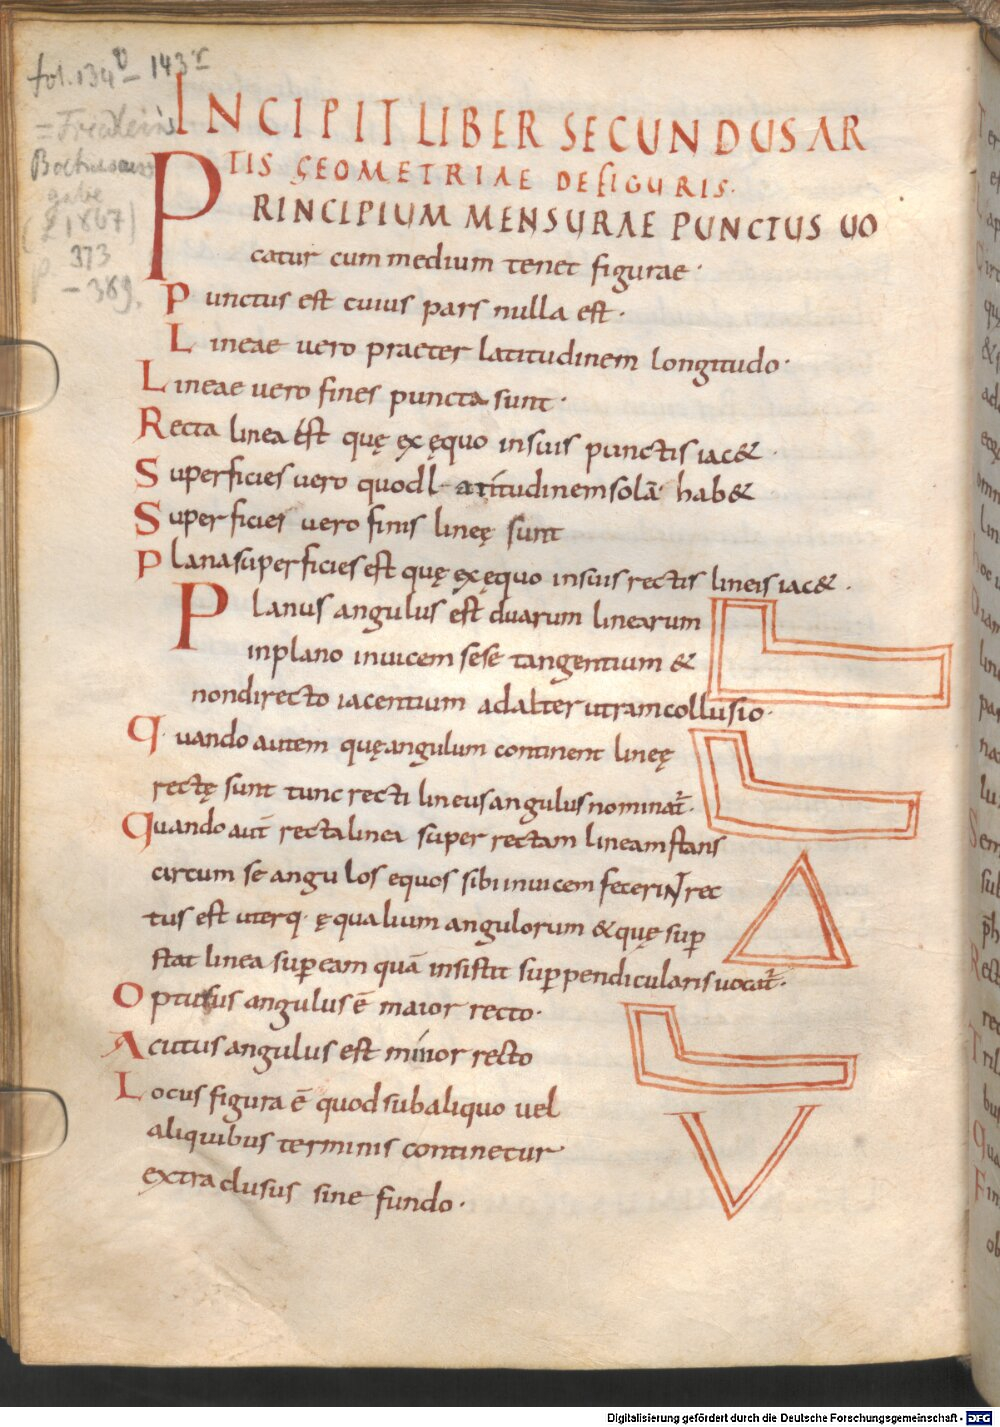 fol. 134v – 143r
= Friedlein
Boethiusaus
gabe
(L 1867)
p. 373
– 389.
INCIPIT LIBER SECUNDUS AR
TIS GEOMETRIAE DE FIGURIS·
PRINCIPIUM MENSURAE PUNCTUS UO
catur cum medium tenet figurae·
Punctus est cuius pars nulla est·
Lineae uero praeter latitudinem longitudo·
Lineae uero fines puncta sunt·
Recta linea est quę ex ęquo insuis punctis iac&·
Superficies uero quod l atitudinem solā hab&
Superficiei uero finis lineę sunt
Plana superficies est quę ex ęquo insuis rectis lineis iac&·
Planus angulus est duarum linearum
inplano inuicem sese tangentium &
nondirecto iacentium ad alterutram collusio·
Quando autem quę angulum continent lineę
rectę sunt tunc recti lineus angulus nominat̄·
Quando aut̄ recta linea super rectam lineam stans
circum se angulos equos sibi inuicem fecerint rec
tus est uterq· ęqualium angulorum & quę sup̄
stat linea sup̄ eam quā insistit sup̄pendicularis uocat̄·
Optusus angulus ē maior recto·
Acutus angulus est minor recto
Locus figura ē quod sub aliquo uel
aliquibus terminis continetur
extra clusus sine fundo·
Digitalisierung gefördert durch die Deutsche Forschungsgemeinschaft - DFG